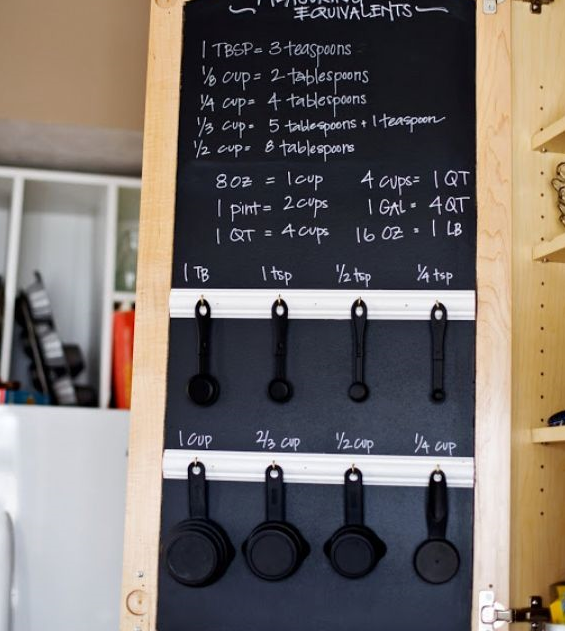 MEASURING
EQUIVALENTS
1 TBSP = 3 teaspoons
1/8 cup = 2 tablespoons
1/4 cup = 4 tablespoons
1/3 cup = 5 tablespoons + 1 teaspoon
1/2 cup = 8 tablespoons
8 oz = 1 cup 4 cups = 1 QT
1 pint = 2 cups 1 GAL = 4 QT
1 QT = 4 cups 16 OZ = 1 LB
1 TB 1 tsp 1/2 tsp 1/4 tsp
1 cup 2/3 cup 1/2 cup 1/4 cup